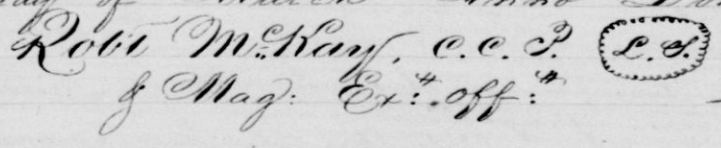 Robt McKay, C.C.P. L.S.
& Mag: Ex: Off: